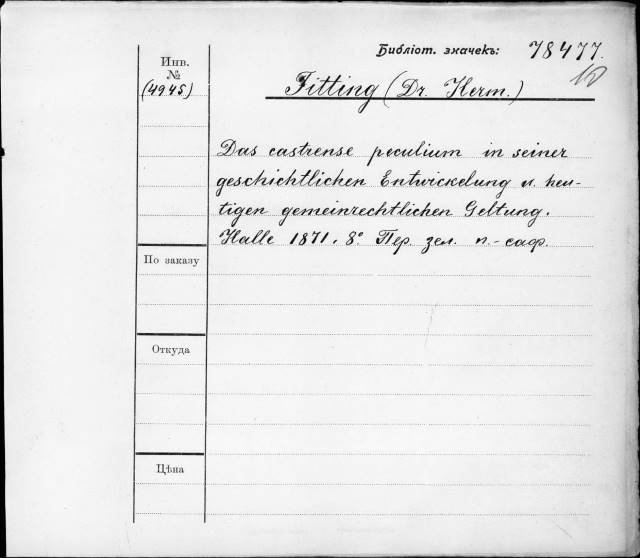 Библіот. значекъ: 78477.
10
Инв.
№
(4945)
Fitting (Dr. Herm.)
Das castrense peculium in seiner
geschichtlichen Entwickelung u. heu-
tigen gemeinrechtlichen Geltung.
Halle 1871. 8° Пер. зел. п.-саф.
По заказу
Откуда
Цѣна